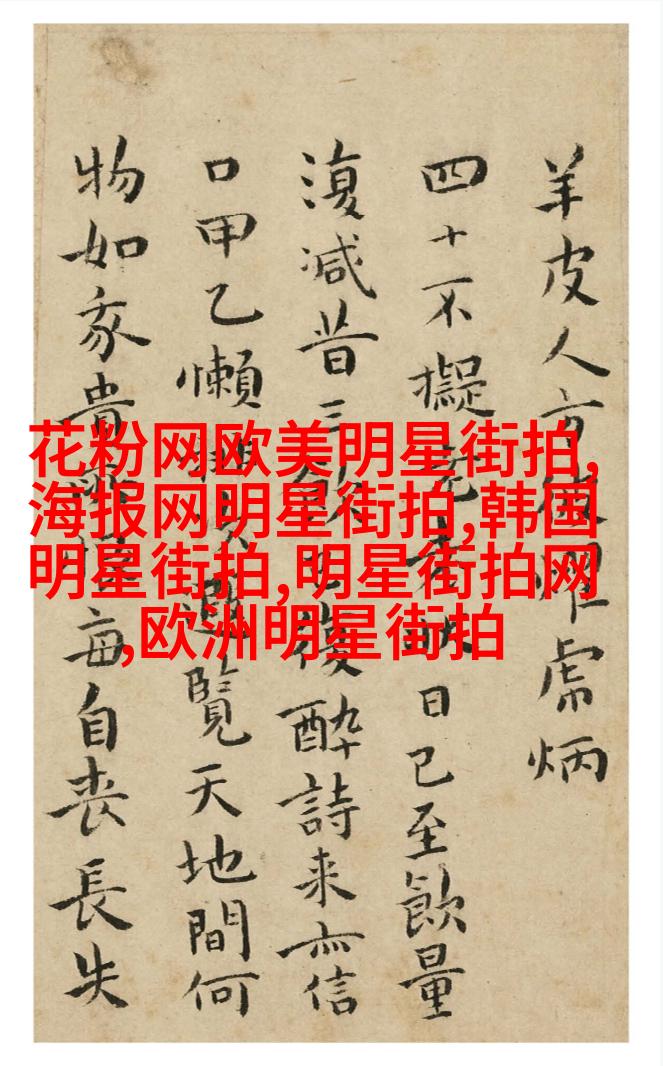 羊皮人方耀虎炳
四十不擬日已至飲量
復減昔三飲已復醉詩来亦信
口甲乙懶次遐覽天地間何
物如我貴每自喪長失
花粉网欧美明星街拍,
海报网明星街拍,韩国
明星街拍,明星街拍网
,欧洲明星街拍